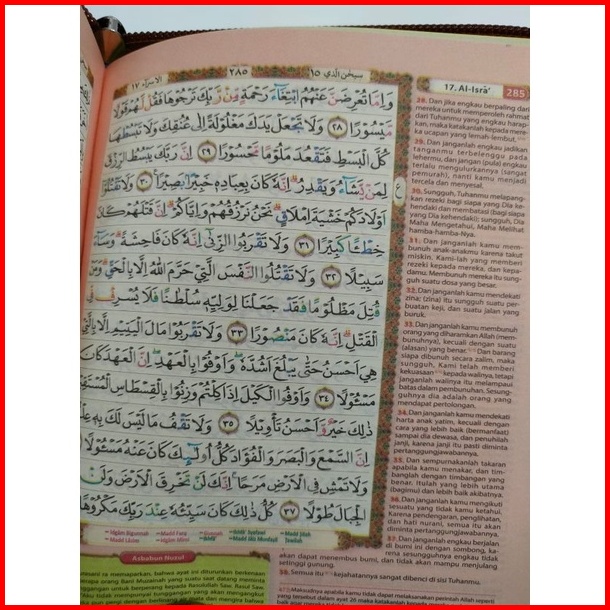 الاسراء ١٧
٢٨٥
سبحن الذي ١٥
17. Al-Isrā'
285
وَاِمَّا تُعْرِضَنَّ عَنْهُمُ ابْتِغَاۤءَ رَحْمَةٍ مِّنْ رَّبِّكَ تَرْجُوْهَا فَقُلْ لَّهُمْ قَوْلًا
مَّيْسُوْرًا ٢٨ وَلَا تَجْعَلْ يَدَكَ مَغْلُوْلَةً اِلٰى عُنُقِكَ وَلَا تَبْسُطْهَا
كُلَّ الْبَسْطِ فَتَقْعُدَ مَلُوْمًا مَّحْسُوْرًا ٢٩ اِنَّ رَبَّكَ يَبْسُطُ الرِّزْقَ
لِمَنْ يَّشَاۤءُ وَيَقْدِرُ اِنَّهٗ كَانَ بِعِبَادِهٖ خَبِيْرًا بَصِيْرًا ٣٠ وَلَا تَقْتُلُوْٓا
اَوْلَادَكُمْ خَشْيَةَ اِمْلَاقٍ نَحْنُ نَرْزُقُهُمْ وَاِيَّاكُمْ اِنَّ قَتْلَهُمْ كَانَ
خِطْـًٔا كَبِيْرًا ٣١ وَلَا تَقْرَبُوا الزِّنٰٓى اِنَّهٗ كَانَ فَاحِشَةً وَسَاۤءَ
سَبِيْلًا ٣٢ وَلَا تَقْتُلُوا النَّفْسَ الَّتِيْ حَرَّمَ اللّٰهُ اِلَّا بِالْحَقِّ وَمَنْ
قُتِلَ مَظْلُوْمًا فَقَدْ جَعَلْنَا لِوَلِيِّهٖ سُلْطٰنًا فَلَا يُسْرِفْ فِّى
الْقَتْلِ اِنَّهٗ كَانَ مَنْصُوْرًا ٣٣ وَلَا تَقْرَبُوْا مَالَ الْيَتِيْمِ اِلَّا بِالَّتِيْ
هِيَ اَحْسَنُ حَتّٰى يَبْلُغَ اَشُدَّهٗ وَاَوْفُوْا بِالْعَهْدِ اِنَّ الْعَهْدَ كَانَ
مَسْـُٔوْلًا ٣٤ وَاَوْفُوا الْكَيْلَ اِذَا كِلْتُمْ وَزِنُوْا بِالْقِسْطَاسِ الْمُسْتَقِيْمِ
ذٰلِكَ خَيْرٌ وَّاَحْسَنُ تَأْوِيْلًا ٣٥ وَلَا تَقْفُ مَا لَيْسَ لَكَ بِهٖ عِلْمٌ
اِنَّ السَّمْعَ وَالْبَصَرَ وَالْفُؤَادَ كُلُّ اُولٰۤىِٕكَ كَانَ عَنْهُ مَسْـُٔوْلًا
وَلَا تَمْشِ فِى الْاَرْضِ مَرَحًا اِنَّكَ لَنْ تَخْرِقَ الْاَرْضَ وَلَنْ
الْجِبَالَ طُوْلًا ٣٧ كُلُّ ذٰلِكَ كَانَ سَيِّئُهٗ عِنْدَ رَبِّكَ مَكْرُوْهًا
28. Dan jika engkau berpaling dari
mereka untuk memperoleh rahmat
dari Tuhanmu yang engkau harap-
kan, maka katakanlah kepada mere-
ka ucapan yang lemah-lembut.
29. Dan janganlah engkau jadikan
tanganmu terbelenggu pada
lehermu, dan jangan (pula) engkau
terlalu mengulurkannya (sangat
pemurah), nanti kamu menjadi
tercela dan menyesal.
30. Sungguh, Tuhanmu melapang-
kan rezeki bagi siapa yang Dia ke-
hendaki dan membatasi (bagi siapa
yang Dia kehendaki); sungguh, Dia
Maha Mengetahui, Maha Melihat
hamba-hamba-Nya.
31. Dan janganlah kamu mem-
bunuh anak-anakmu karena takut
miskin. Kami-lah yang memberi
rezeki kepada mereka, dan kepa-
damu. Membunuh mereka itu sung-
guh suatu dosa yang besar.
32. Dan janganlah kamu mendekati
zina; (zina) itu sungguh suatu per-
buatan keji, dan suatu jalan yang
buruk.
33. Dan janganlah kamu membunuh
orang yang diharamkan Allah (mem-
bunuhnya), kecuali dengan suatu
(alasan) yang benar. Dan barang
siapa dibunuh secara zalim, maka
sungguh, Kami telah memberi
kekuasaan kepada walinya, tetapi
janganlah walinya itu melampaui
batas dalam pembunuhan. Sesung-
guhnya dia adalah orang yang
mendapat pertolongan.
34. Dan janganlah kamu mendekati
harta anak yatim, kecuali dengan
cara yang lebih baik (bermanfaat)
sampai dia dewasa, dan penuhilah
janji, karena janji itu pasti diminta
pertanggungjawabannya.
35. Dan sempurnakanlah takaran
apabila kamu menakar, dan tim-
banglah dengan timbangan yang
benar. Itulah yang lebih utama
(bagimu) dan lebih baik akibatnya.
36. Dan janganlah kamu mengikuti
sesuatu yang tidak kamu ketahui.
Karena pendengaran, penglihatan,
dan hati nurani, semua itu akan
diminta pertanggungjawabannya.
37. Dan janganlah engkau berjalan
di bumi ini dengan sombong, ka-
rena sesungguhnya engkau tidak
akan dapat menembus bumi dan tidak akan mampu menjulang
setinggi gunung.
38. Semua itu kejahatannya sangat dibenci di sisi Tuhanmu.
Asbabun Nuzul